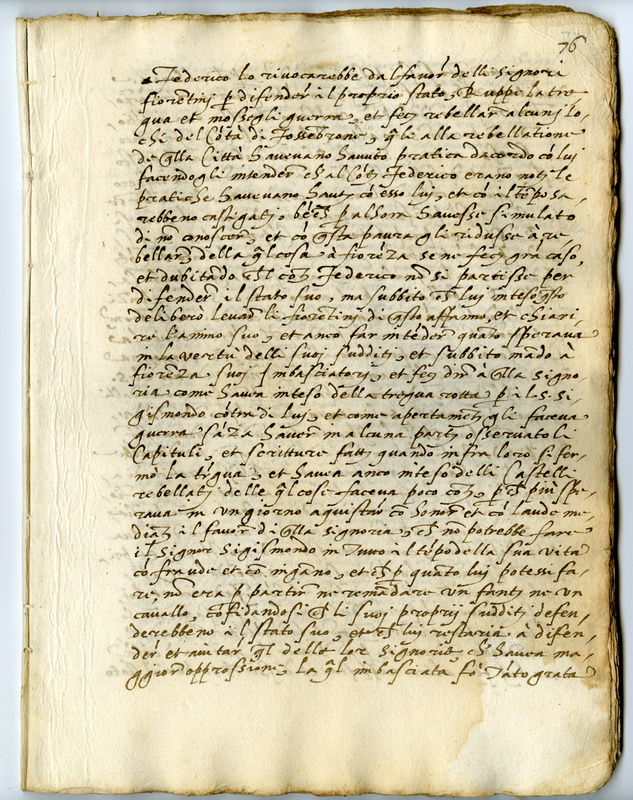 76
Federico lo rivocarebbe dal favor delli Signori
fiorentinj p difender il proprio stato, ruppe la tre,
gua et mossegli guerra, et fecj rebellar alcunj lo,
chi del Cōtà di Fossebrone, q̄li alla rebellatione
de q̄lla Città havevano havuto pratica dacordo cō lui
facendogle intender ch̄ al Cōtj Federico erano notj le
pratiche havevano hautj cō esso lui, et cō il tēpo sa,
rebbeno castigatj, bēch̄ p alhora havesse simulato
di nō conoscer, et cō q̄sta paura gli ridusse à re,
bellar, della q̄l cosa à fiorēza se ne fecj grā caso,
et dubitādo ch̄l cotj Federico nō si partisse per
difender il stato suo, ma subbito ch̄ lui inteso q̄sto
deliberò levar li fiorētinj di q̄sto affanno, et chiari,
re l'animo suo, et anco far intēder quāto sperava
in la vertù delli suoj sudditj, et subbito mādò à
fiorēza suoj Imbasciatorj, et fecj dir à q̄lla signo,
ria come havea inteso della tregua rotta p il s. si,
gismondo cōtra di lui, et come apertamētj gli faceva
guerra sāza haver in alcuna partj osservato li
Capituli, et scritture fattj quando infra loro si fer,
mò la trégua, et havea anco inteso delli Castelli
rebellatj delle q̄l cose faceva poco cōtj, pch̄ più spe,
rava in un giorno aquistar cō honor et cō laude me,
diātj il favor di q̄lla signoria, ch̄ nō potrebbe fare
il signore Sigismondo in Tutto il tēpo della sua vita
cō fraude et cō ingāno, et ch̄ p quanto lui potessi fa,
re, nō era p partir ne remādare un fantj ne un
cavallo, cōfidandosi ch̄ li suoj proprii sudditj defen,
derebbeno il stato suo, et ch̄ lui restaria à difen,
der et aiutar q̄l delle lore Signorie ch̄ havea ma,
ggior oppressione, la q̄l imbasciata fò Tāto grata